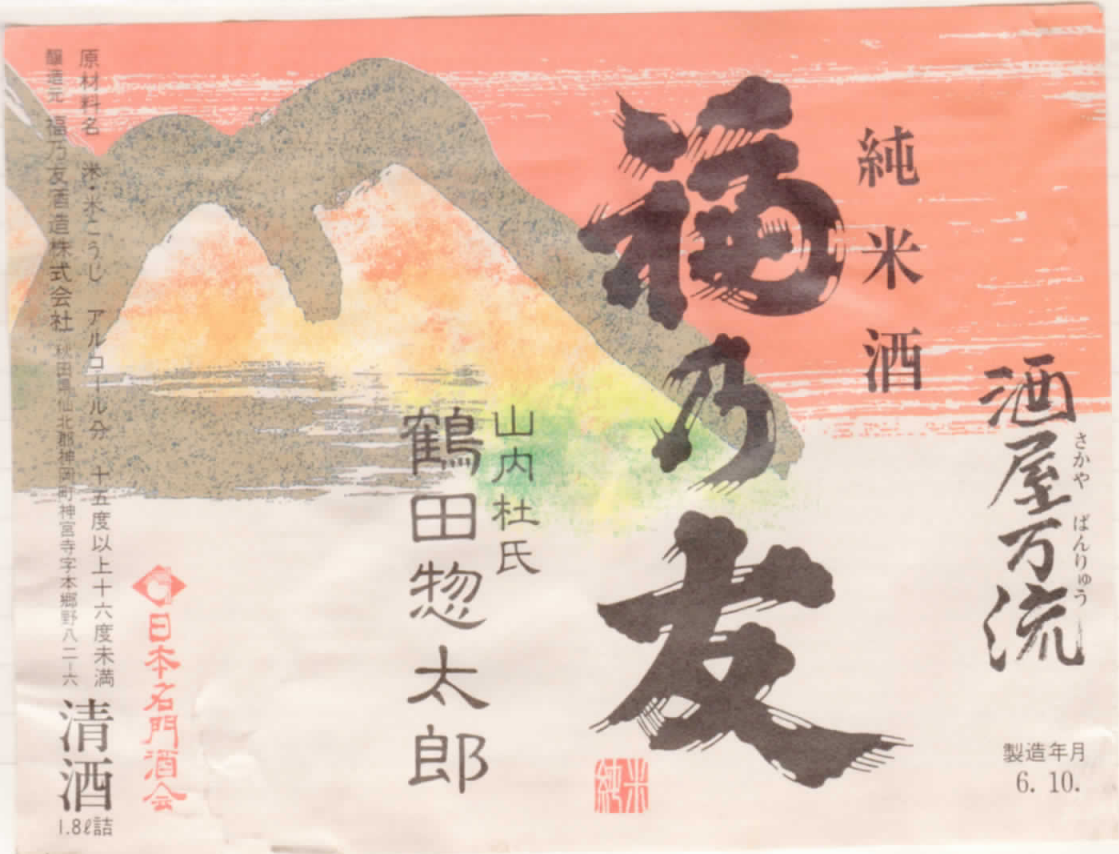 酒屋万流
さかや ばんりゅう
製造年月
6. 10.
純米酒
福乃友
純米
山内杜氏
鶴田惣太郎
日本名門酒会
原材料名 米・米こうじ アルコール分 十五度以上十六度未満
醸造元 福乃友酒造株式会社 秋田県仙北郡神岡町神宮寺字本郷野八二−六
清酒
1.8ℓ詰